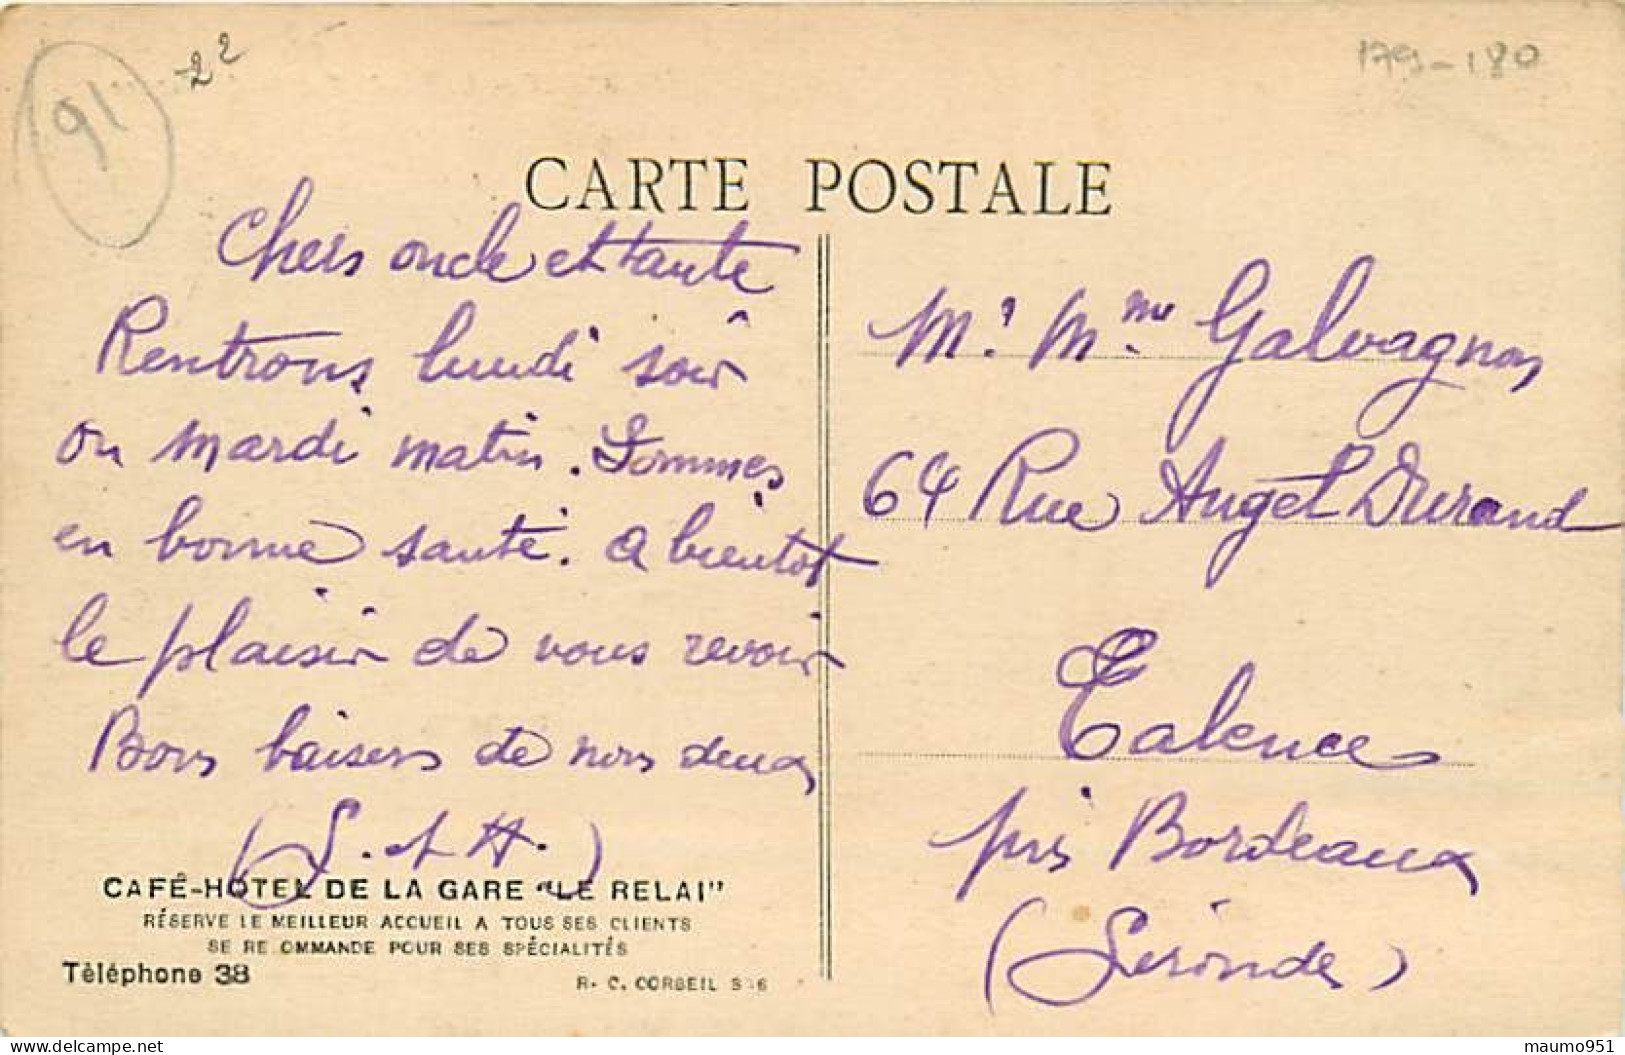 91
22
179-180
CARTE POSTALE
Chers oncle et tante
Rentrons lundi soir
ou mardi matin. Sommes
en bonne santé. A bientot
le plaisir de vous revoir
Bons baisers de nous deux
(S. et H.)
CAFÉ-HOTEL DE LA GARE "LE RELAI"
RÉSERVE LE MEILLEUR ACCUEIL A TOUS SES CLIENTS
SE RE OMMANDE POUR SES SPÉCIALITÉS
Téléphone 38
R. C. CORBEIL
Mr Mme Galvagnon
64 Rue Auget Durand
Talence
près Bordeaux
(Gironde)
maumo951